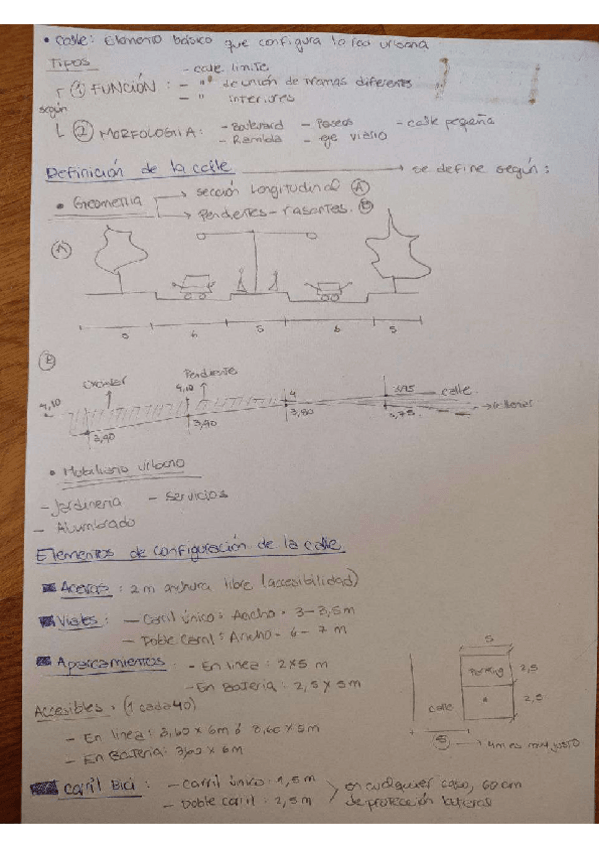 • Calle: Elemento básico que configura la red urbana
Tipos
según
① FUNCIÓN: - calle límite
- " de unión de tramas diferentes
- " interiores
② MORFOLOGIA: - Boulevard - Paseos - calle pequeña
- Rambla - eje viario
Definición de la calle → se define según:
• Geometria → sección longitudinal Ⓐ
→ Pendientes - rasantes. Ⓑ
Ⓐ
5 6 5 6 5
Ⓑ
Pendiente
4,10 4,10 4 calle
3,90 3,90 3,80 3,75
• Mobiliario urbano
- Jardineria - Servicios
- Alumbrado
Elementos de configuración de la calle.
Aceras: 2 m anchura libre (accesibilidad)
Viales: - Carril único: Ancho = 3-3,5m
- Doble Carril: Ancho = 6-7 m
Aparcamientos: - En linea: 2x5 m
- En Bateria: 2,5 x 5m
5
Parking 2,5
calle 2,5
5 → 4m es muy justo
Accesibles: (1 cada 40)
- En linea: 3,60 x 6m ó 3,60 x 5m
- En Bateria: 3,60 x 6m
Carril Bici: - Carril único: 1,5m
- Doble carril: 2,5m
en cualquier caso, 60 cm
de protección lateral